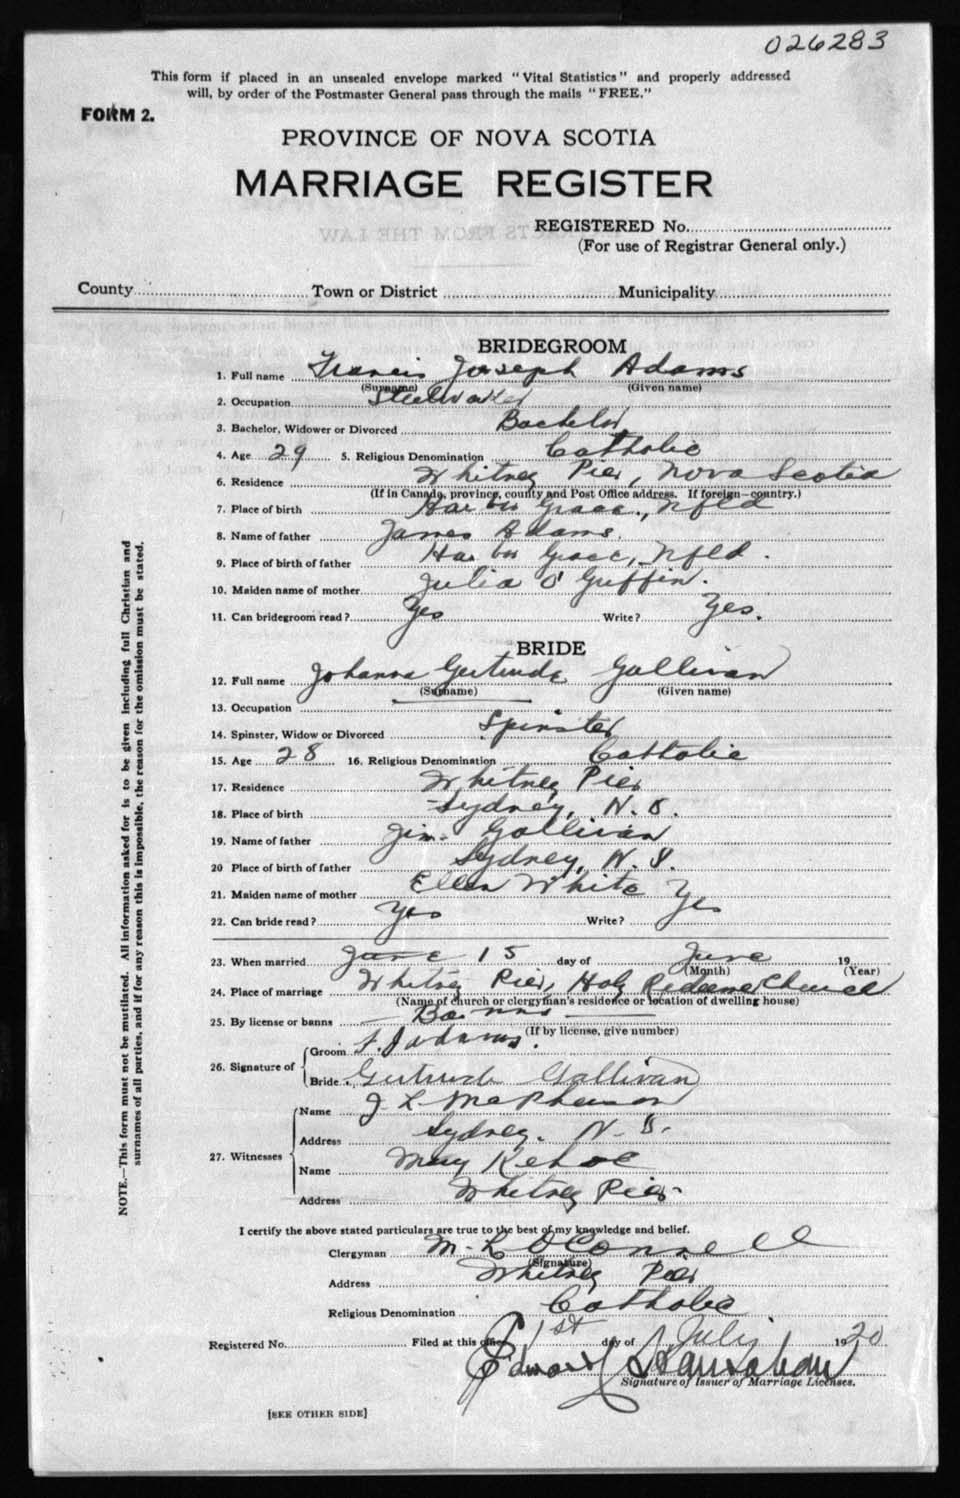 026283
This form if placed in an unsealed envelope marked "Vital Statistics" and properly addressed
will, by order of the Postmaster General pass through the mails "FREE."
FORM 2.
PROVINCE OF NOVA SCOTIA
MARRIAGE REGISTER
REGISTERED No.
(For use of Registrar General only.)
County Town or District Municipality
BRIDEGROOM
1. Full name Francis Joseph Adams
(Surname) (Given name)
2. Occupation Steelworker
3. Bachelor, Widower or Divorced Bachelor
4. Age 29 5. Religious Denomination Catholic
6. Residence Whitney Pier, Nova Scotia
(If in Canada, province, county and Post Office address. If foreign—country.)
7. Place of birth Harbor Grace., Nfld
8. Name of father James Adams.
9. Place of birth of father Harbor Grace, Nfld.
10. Maiden name of mother Julia O'Griffin.
11. Can bridegroom read? Yes Write? Yes.
BRIDE
12. Full name Johanna Gertrude Gallivan
(Surname) (Given name)
13. Occupation
14. Spinster, Widow or Divorced Spinster
15. Age 28 16. Religious Denomination Catholic
17. Residence Whitney Pier
18. Place of birth Sydney, N. S.
19. Name of father Jim Gallivan
20 Place of birth of father Sydney, N. S.
21. Maiden name of mother Ellen White
22. Can bride read? Yes Write? Yes
23. When married June 15 day of June 19
(Month) (Year)
24. Place of marriage Whitney Pier, Holy Redeemer Church
(Name of church or clergyman's residence or location of dwelling house)
25. By license or banns Banns
(If by license, give number)
26. Signature of Groom F. J Adams.
Bride Gertrude Gallivan
27. Witnesses Name J. L. McPherson
Address Sydney. N. S.
Name May Kehoe
Address Whitney Pier
I certify the above stated particulars are true to the best of my knowledge and belief.
Clergyman M. L O'Connell
(Signature)
Address Whitney Pier
Religious Denomination Catholic
Registered No. Filed at this office 1st day of July 1920
Edward
Signature of Issuer of Marriage Licenses.
[SEE OTHER SIDE]
NOTE.—This form must not be mutilated. All information asked for is to be given including full Christian and
surnames of all parties, and if for any reason this is impossible, the reason for the omission must be stated.